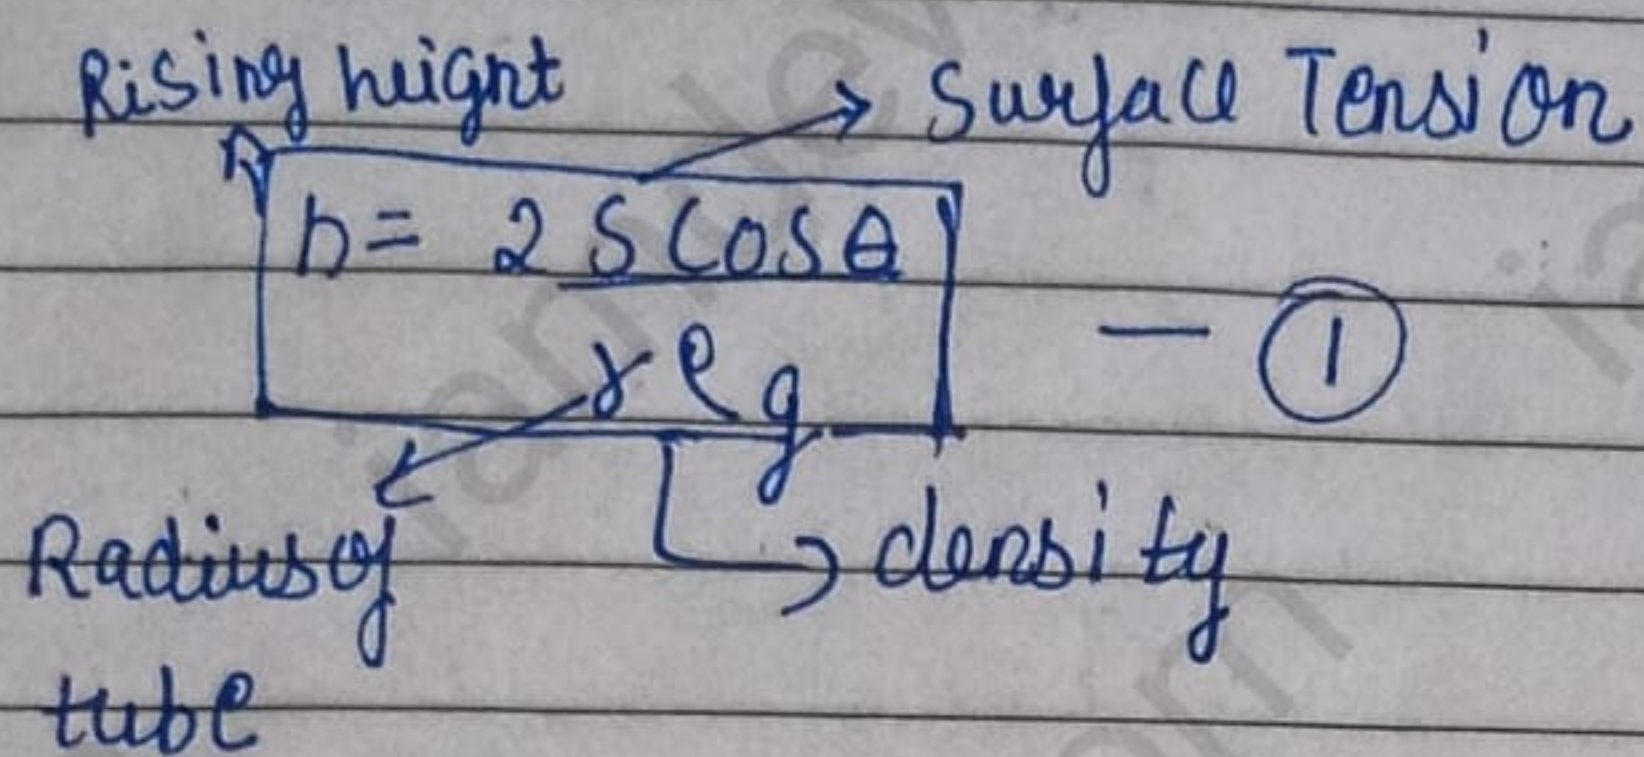 Rising height
Surface Tension
h = 2 S Cosθ
r ρ g
— ①
Radius of
tube
density